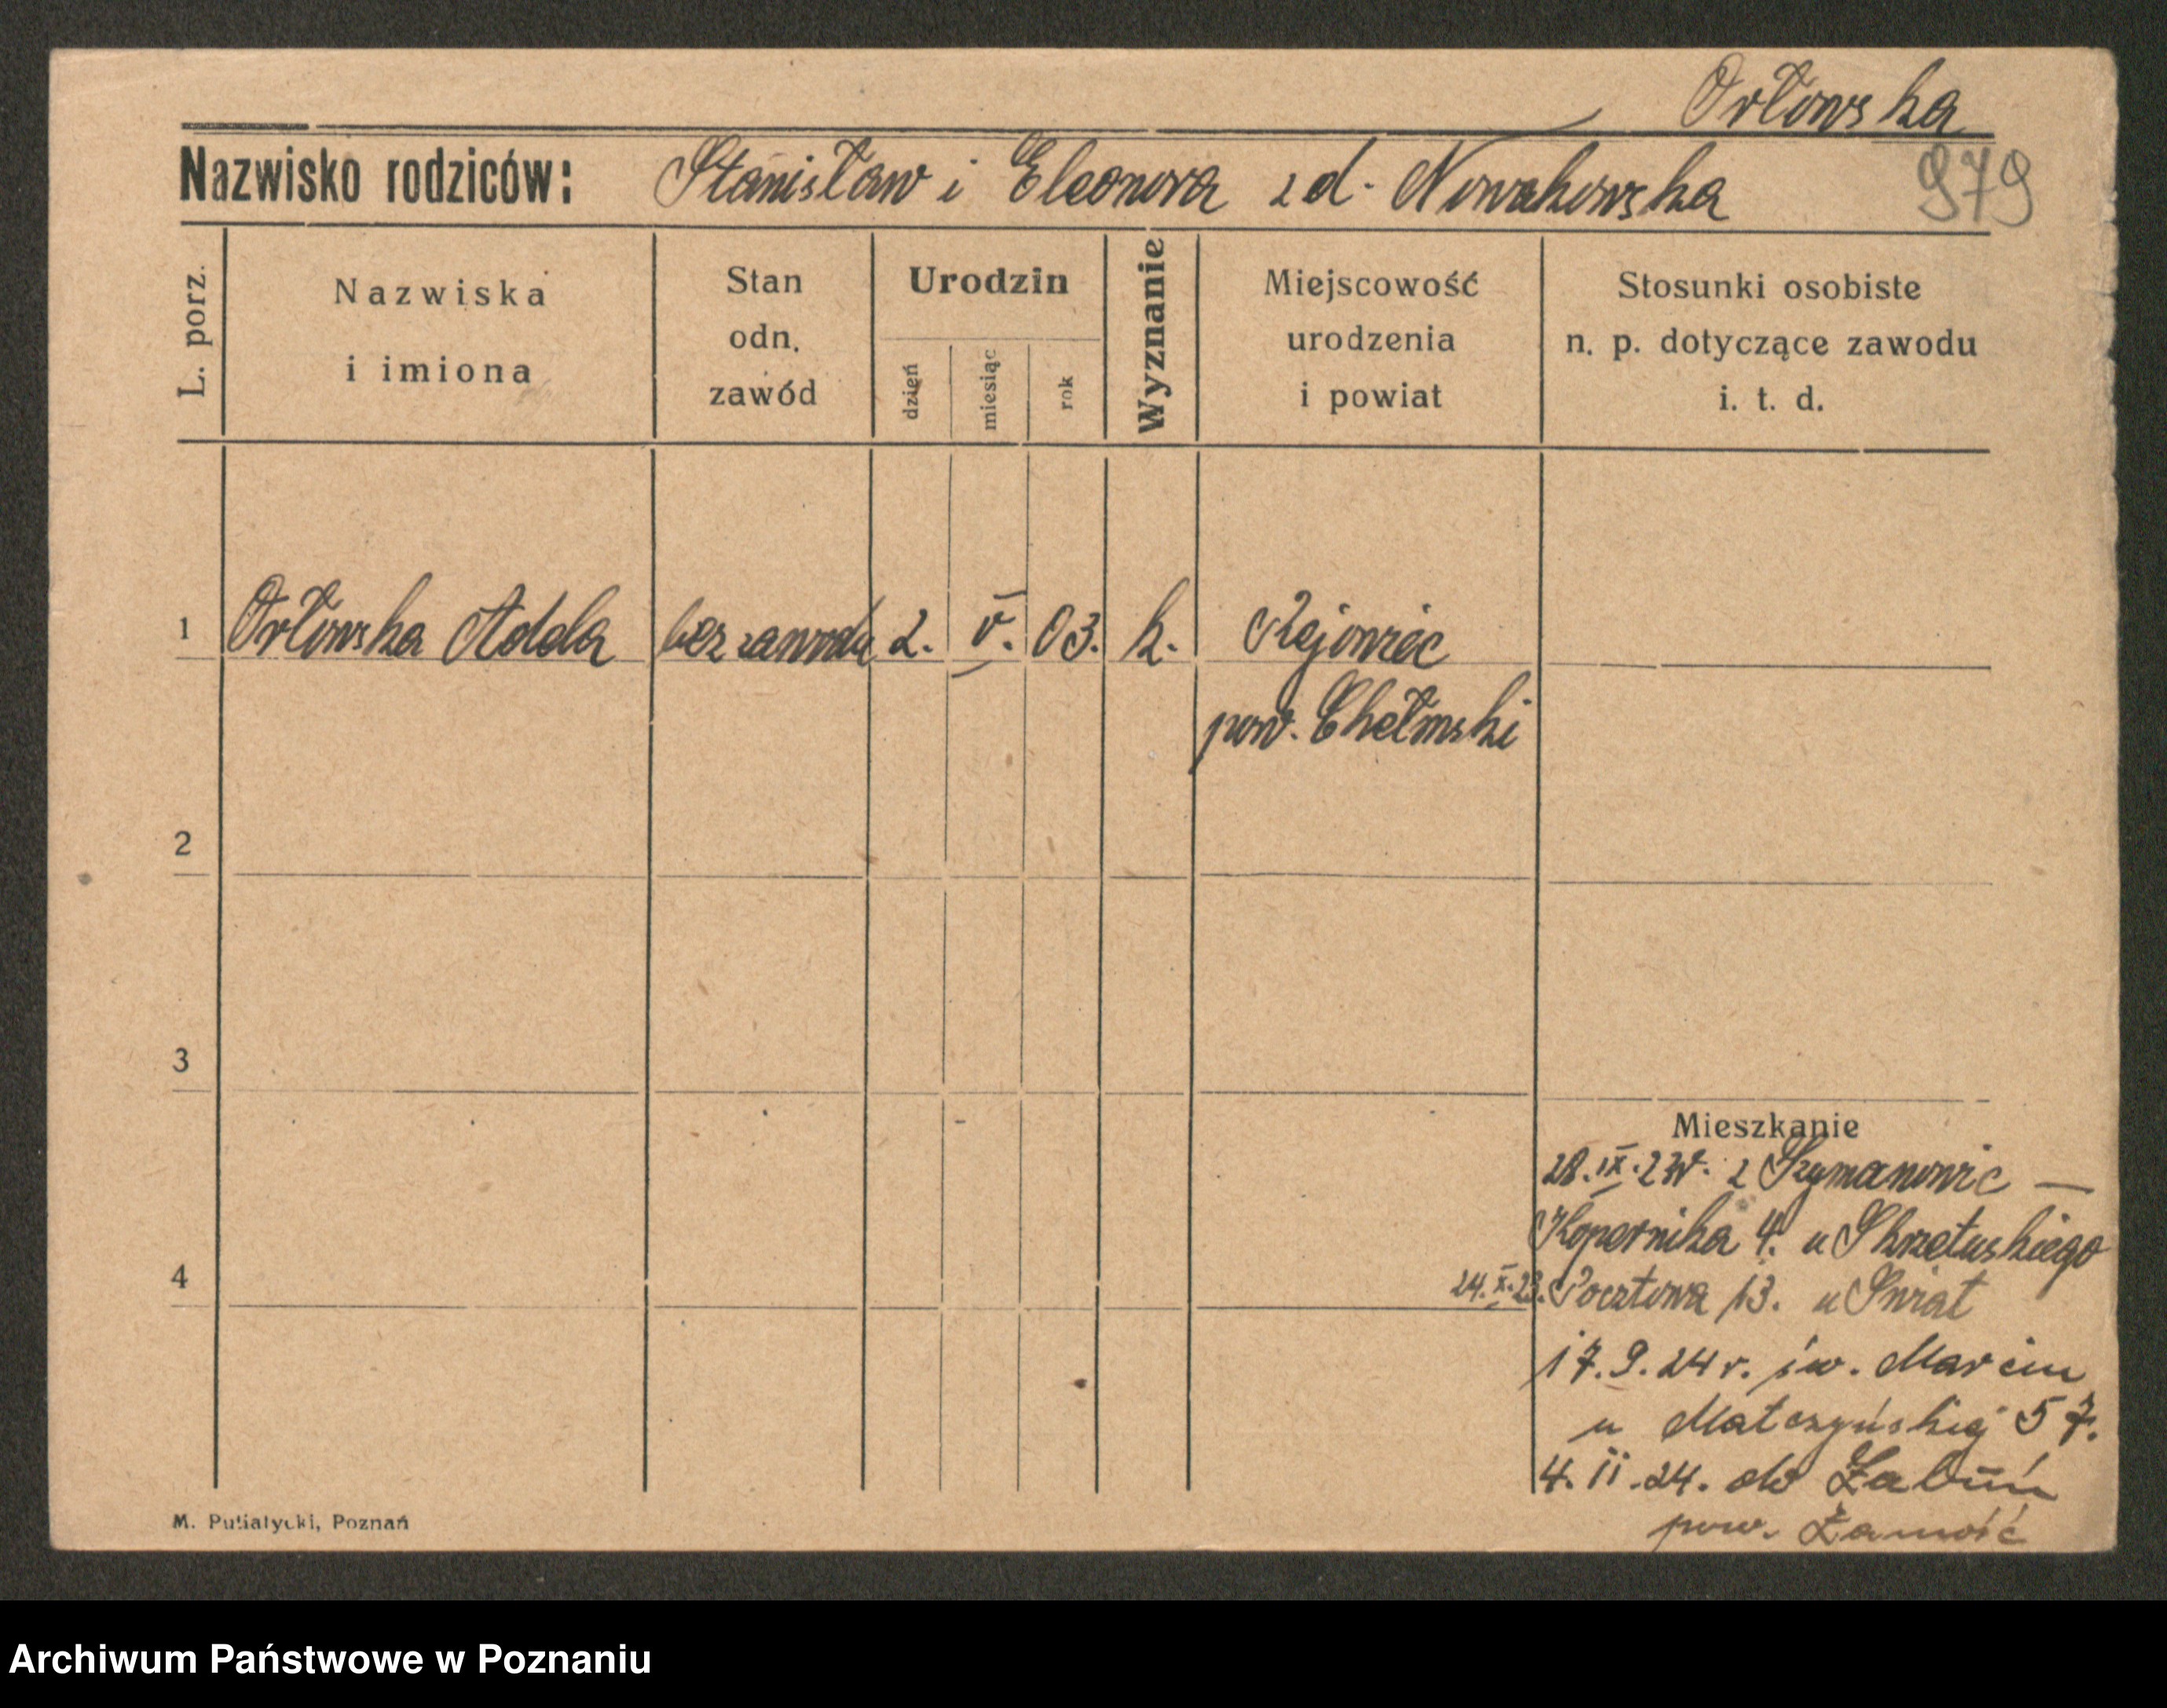 Orłowska
Nazwisko rodziców: Stanisław i Eleonora z d. Nowakowska 979
L. porz.
Nazwiska
i imiona
Stan
odn.
zawód
Urodzin
dzień
miesiąc
rok
Wyznanie
Miejscowość
urodzenia
i powiat
Stosunki osobiste
n. p. dotyczące zawodu
i. t. d.
1 Orłowska Adela bez zawodu 2. V. 03. k. Rejowiec
pow. Chełmski
2
3
Mieszkanie
28. IX. z Szymanowic —
Kopernika 4. u Skrzetuskiego
4
24. X. 23. Pocztowa 13. u Świat
17. 9. 24 r. św. Marcin
u Matczyńskiej 57.
4. 11. 24. do Łabuń
pow. Zamość
M. Putiatycki, Poznań
Archiwum Państwowe w Poznaniu